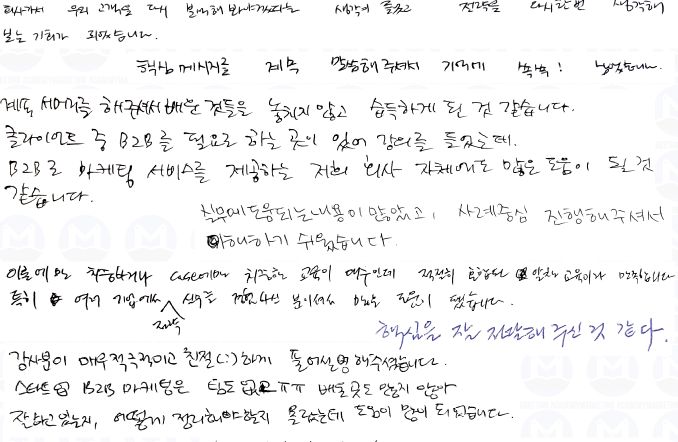 회사가서 우리 고객을 다시 분석해 봐야겠다는 생각이 들었고 전략을 다시한번 생각해
보는 기회가 되었습니다.
핵심 메시지를 계속 말씀해주셔서 기억에 쏙쏙! 남았습니다.
계속 서머리를 해주셔서 배운 것들을 놓치지 않고 습득하게 된 것 같습니다.
클라이언트 중 B2B를 필요로 하는 곳이 있어 강의를 들었는데.
B2B로 마케팅 서비스를 제공하는 저희 회사 자체에도 많은 도움이 될 것
같습니다.
직무에 도움되는 내용이 많았고, 사례중심 진행해주셔서
이해하기 쉬웠습니다.
이론에만 치중하거나 case에만 치중한 교육이 대부분인데 적절히 교육이라 만족합니다
특히 여러 기업에서 전략 분이셔서 도움이 됐습니다.
핵심을 잘 전달해 주신 것 같다.
강사분이 매우 적극적이고 친절(:)하게 풀어 설명해주셨습니다.
스타트업 B2B 마케팅은 팀도 없고ㅠㅠ 배울 곳도 많지 않아
잘하고 있는지, 어떻게 정리해야할지 몰랐는데 도움이 많이 되었습니다.